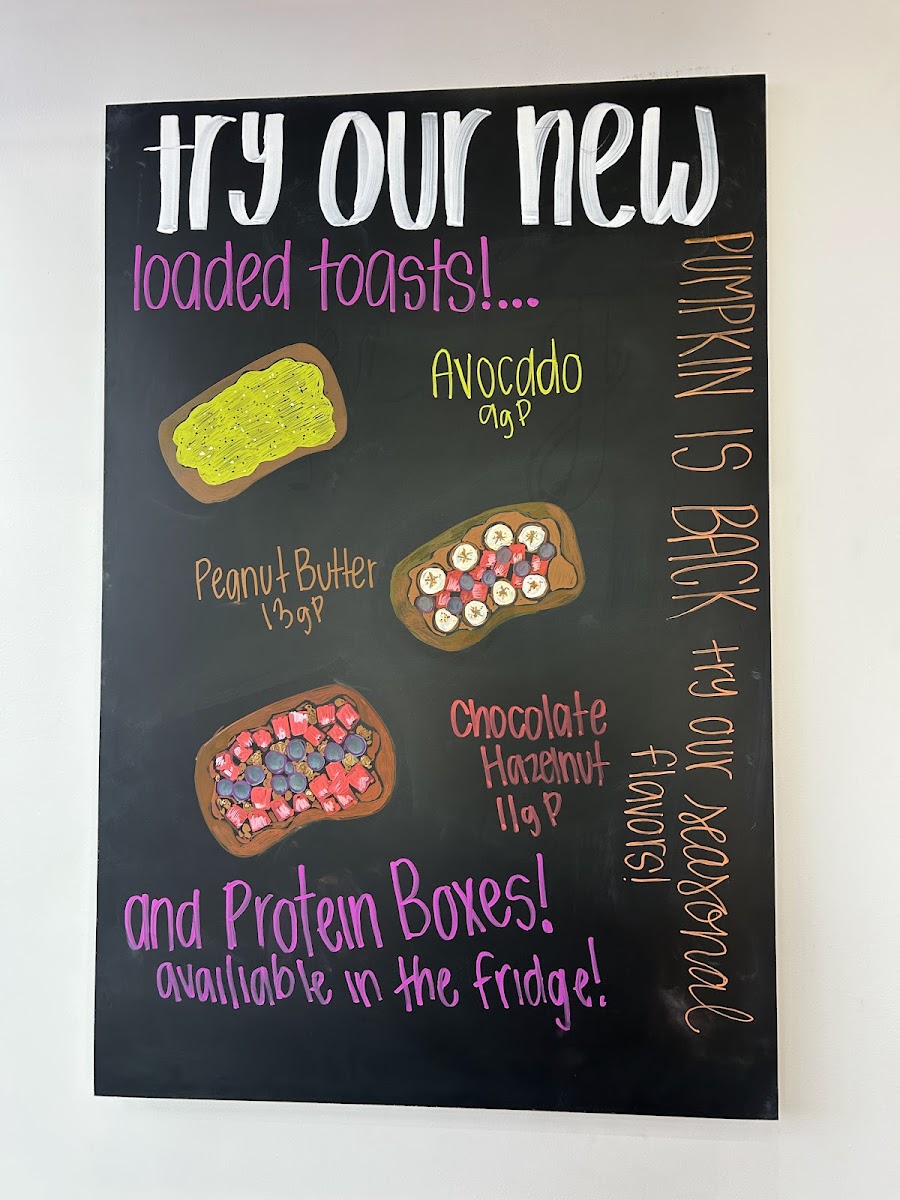 try our new
loaded toasts!...
Avocado
9gP
Peanut Butter
13gP
Chocolate
Hazelnut
11gP
and Protein Boxes!
availiable in the fridge!
PUMPKIN IS BACK try our seasonal
flavors!